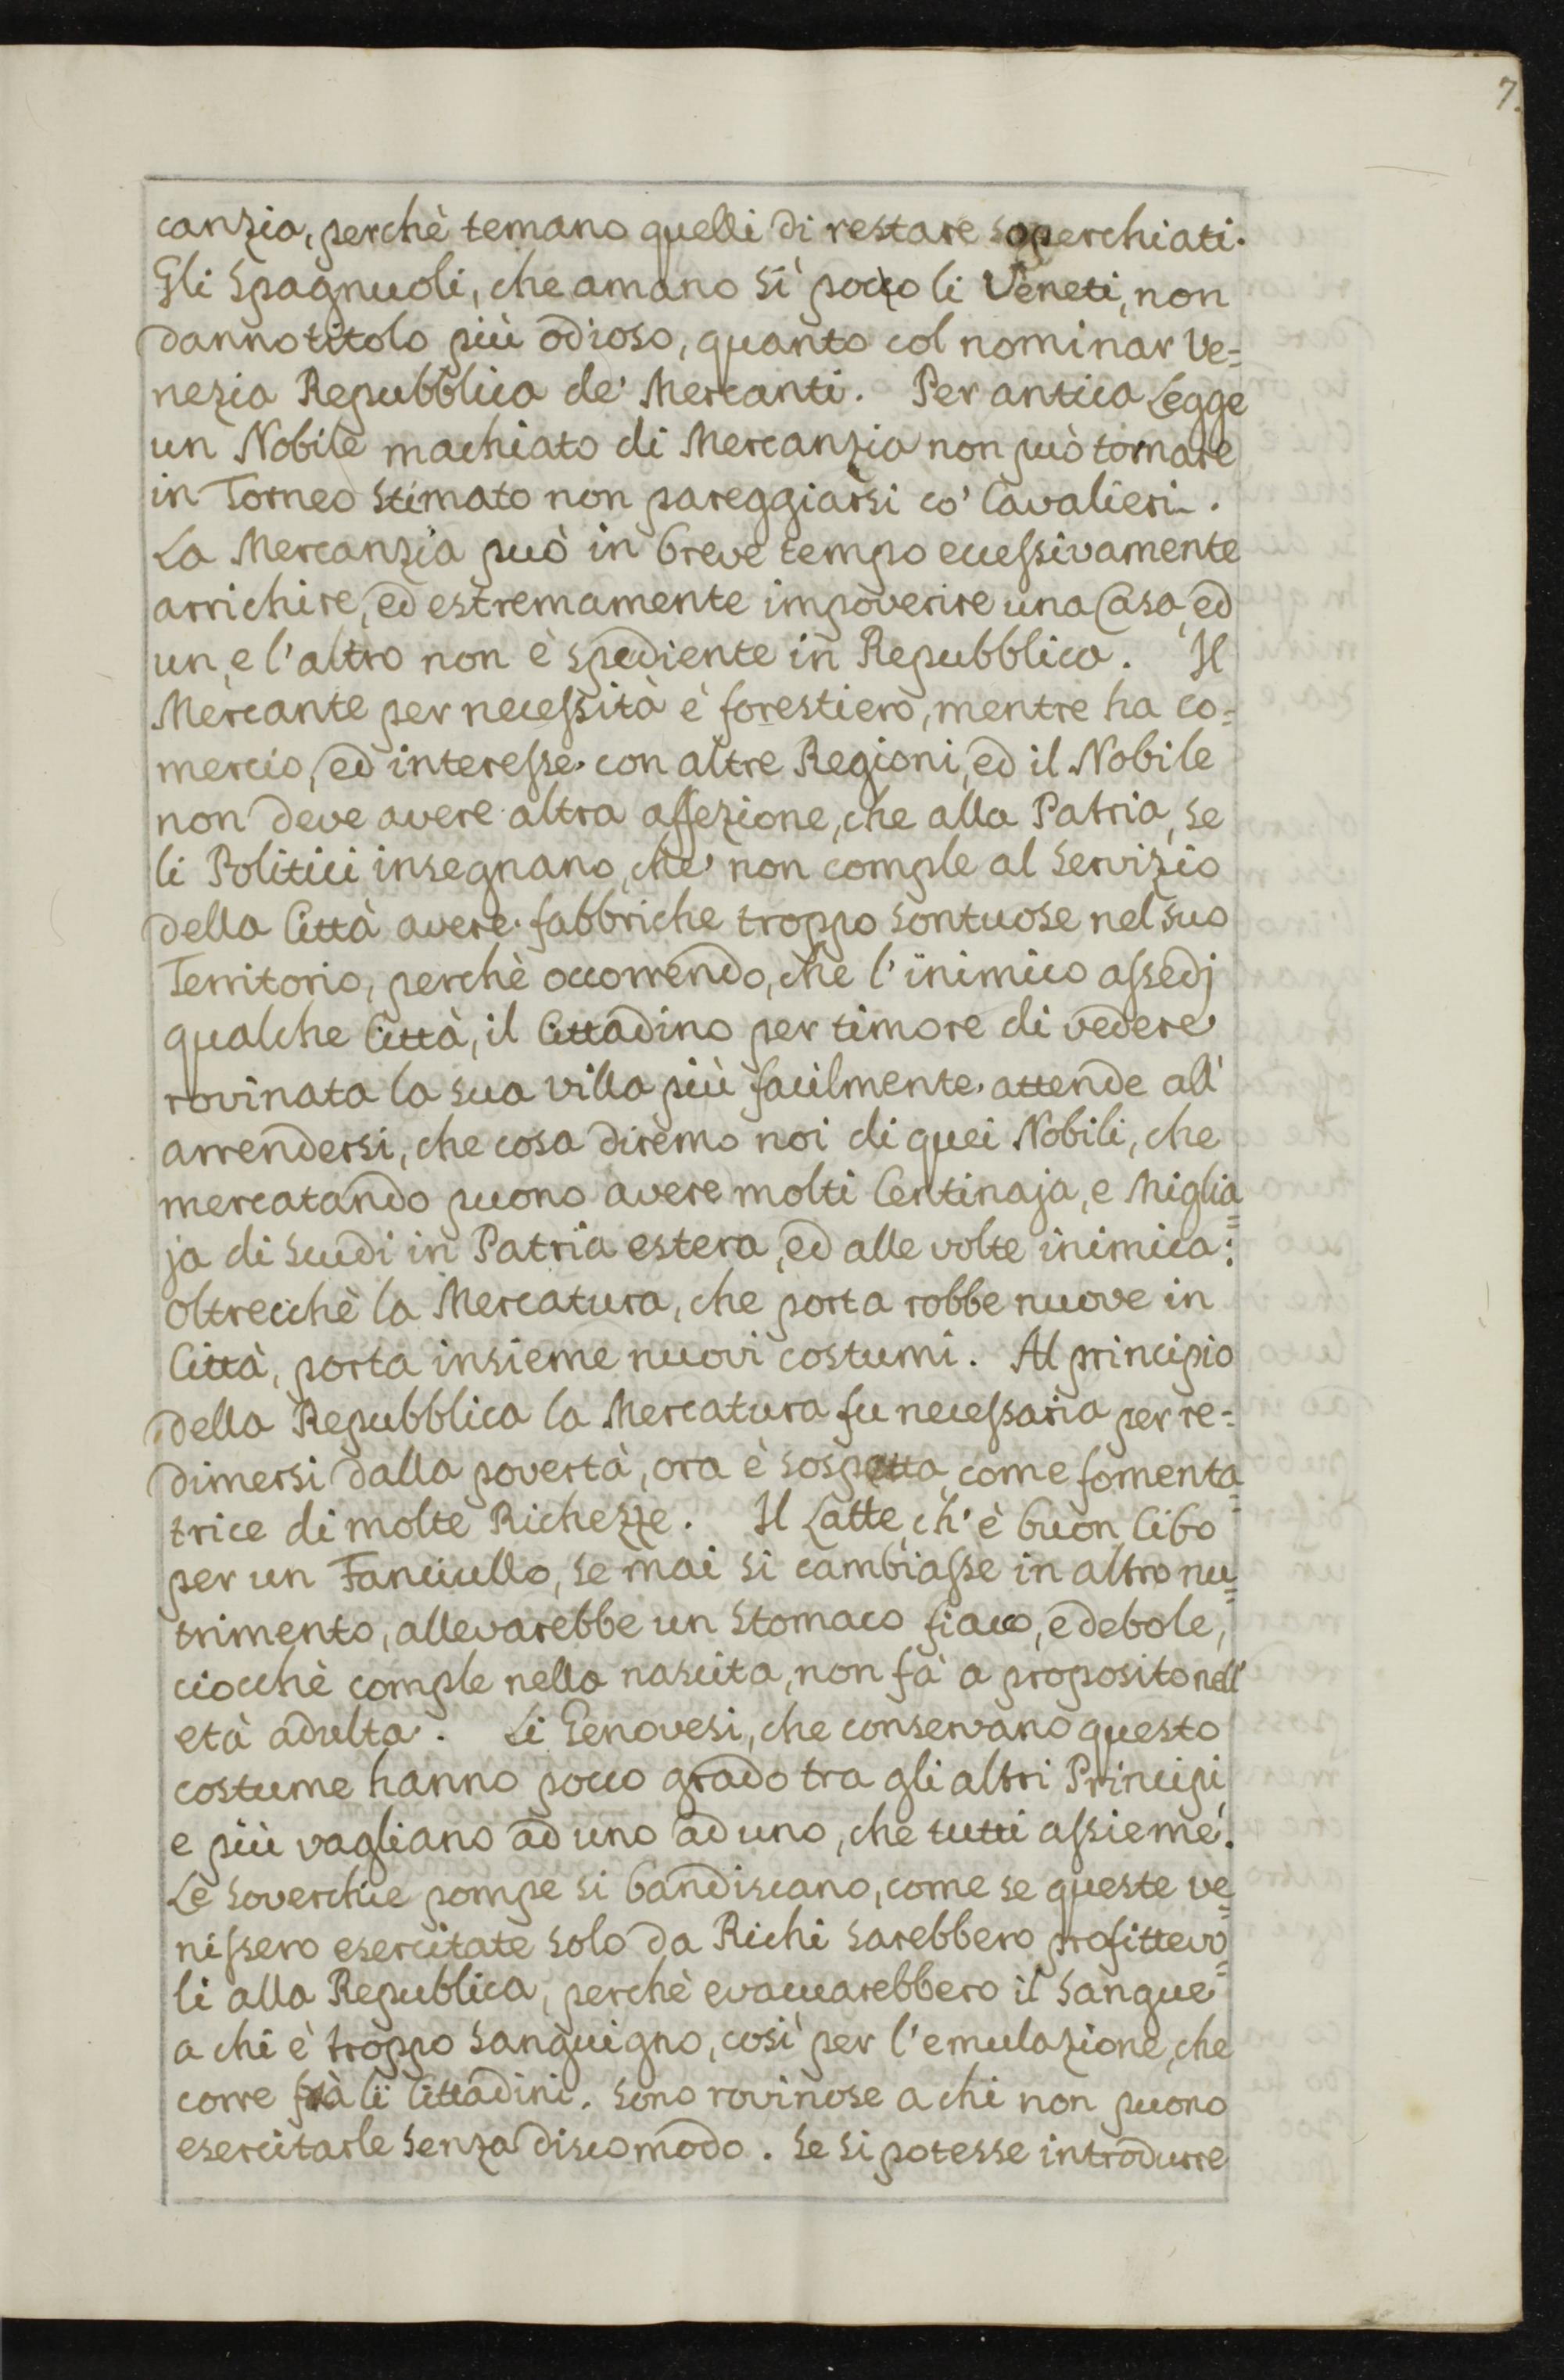 7.
canzia, perchè temano quelli di restare soperchiati.
Gli Spagnuoli, che amano sì pocco li Veneti, non
danno titolo più odioso, quanto col nominar Ve=
nezia Repubblica de' Mercanti. Per antica Legge
un Nobile machiato di Mercanzia non può tornare
in Torneo stimato non pareggiarsi co' Cavalieri.
La Mercanzia può in breve tempo eccessivamente
arrichire, ed estremamente impoverire una Casa, ed
un, e l'altro non è spediente in Repubblica. Il
Mercante per necessità è forestiero, mentre ha co=
mercio, ed interesse con altre Regioni, ed il Nobile
non deve avere altra affezione, che alla Patria, se
li Politici insegnano, che non comple al Servizio
della Città avere fabbriche troppo sontuose nel suo
Territorio, perchè occorrendo, che l'inimico assedj
qualche Città, il Cittadino per timore di vedere
rovinata la sua villa più facilmente attende all'
arrendersi, che cosa diremo noi di quei Nobili, che
mercatando puono avere molti Centinaja, e Miglia=
ja di scudi in Patria estera, ed alle volte inimica:
oltrecchè la Mercatura, che porta robbe nuove in
Città, porta insieme nuovi costumi. Al principio
della Repubblica la Mercatura fu necessaria per re=
dimersi dalla povertà, ora è sospetta come fomenta=
trice di molte Richezze. Il Latte, ch'è buon Cibo
per un Fanciullo, se mai si cambiasse in altro nu=
trimento, allevarebbe un Stomaco fiacco, e debole,
ciocchè comple nella nascita, non fà a proposito nell'
età adulta. Li Genovesi, che conservano questo
costume hanno pocco grado tra gli altri Principi,
e più vagliano ad uno ad uno, che tutti assieme.
Le soverchie pompe si bandiscano, come se queste ve=
nissero esercitate solo da Richi sarebbero profittevo=
li alla Republica, perchè evacuarebbero il Sangue
a chi è troppo sanguigno, così per l'emulazione, che
corre frà li Cittadini. sono rovinose a chi non puono
esercitarle senza discomodo. Se si potesse introdurre